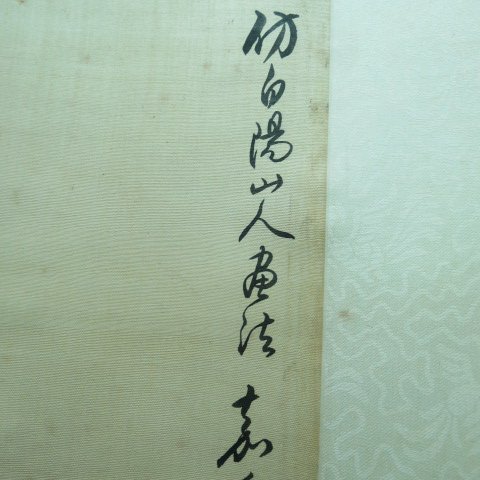 仿白陽山人畫法 嘉